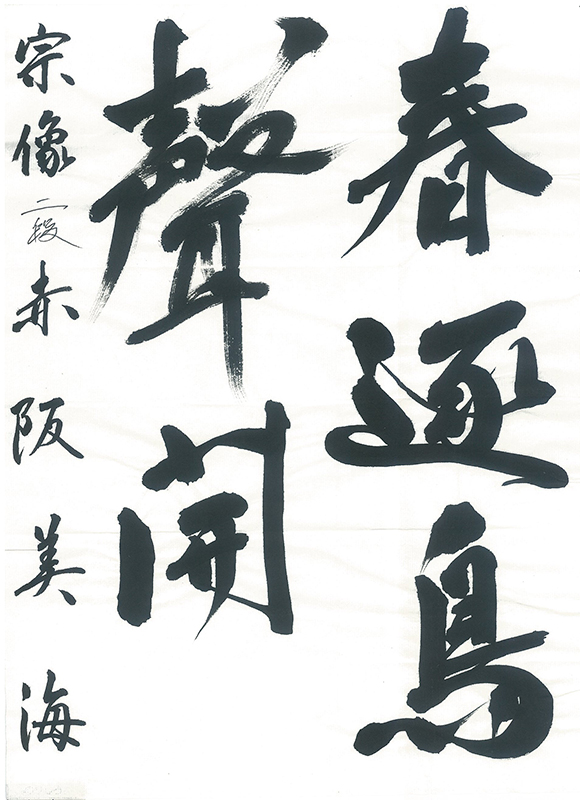 春逐鳥
聲開
宗像二段赤阪美海